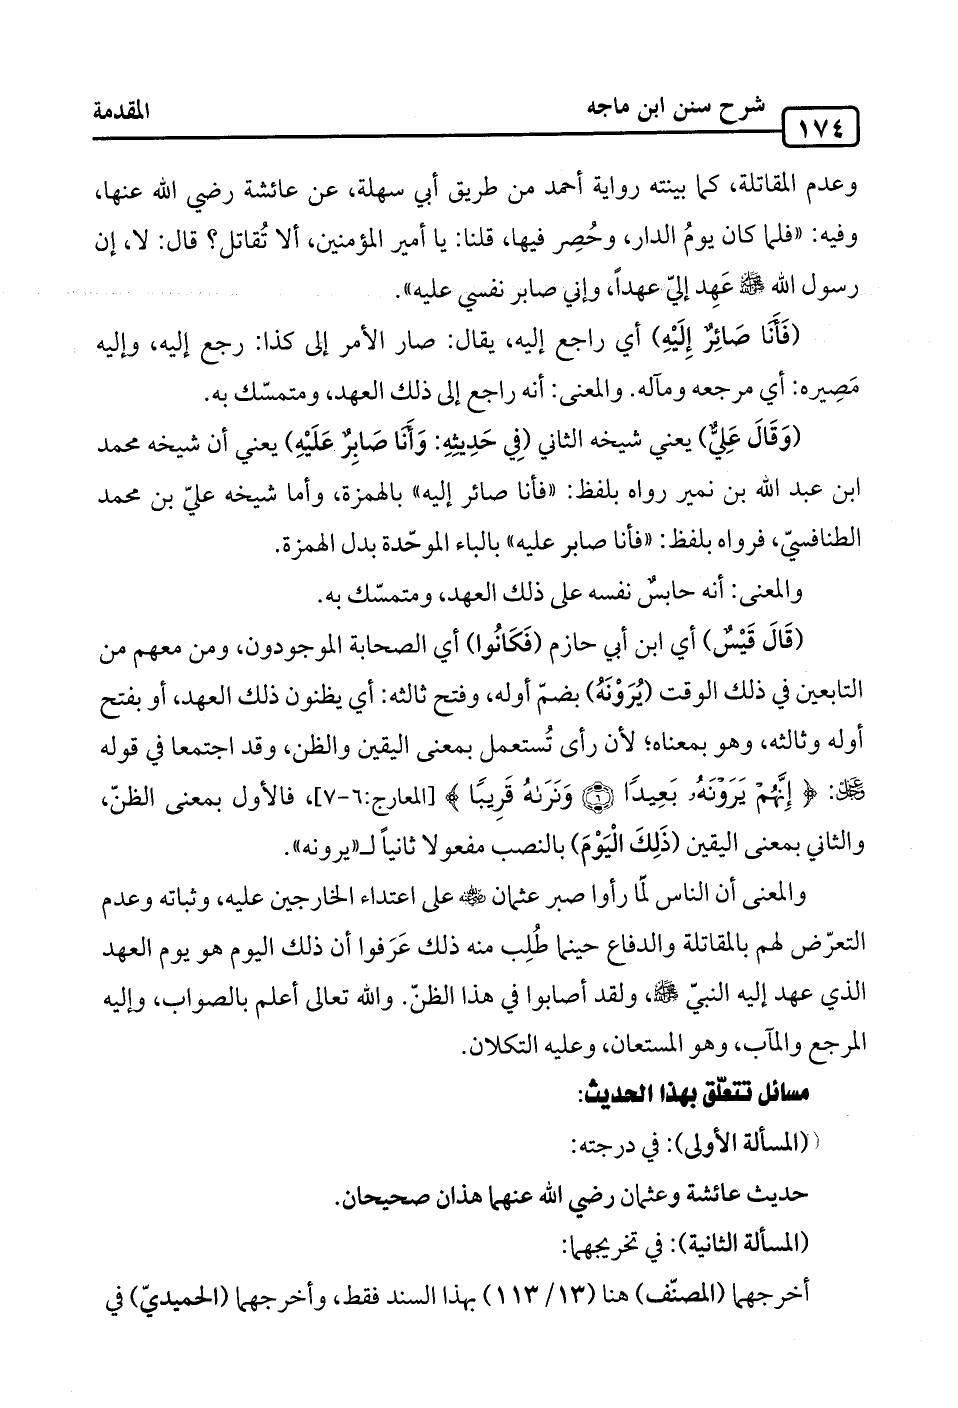 ١٧٤ شرح سنن ابن ماجه المقدمة
وعدم المقاتلة، كما بينته رواية أحمد من طريق أبي سهلة، عن عائشة رضي الله عنها،
وفيه: «فلما كان يومُ الدار، وحُصِر فيها، قلنا: يا أمير المؤمنين، ألا تُقاتل؟ قال: لا، إن
رسول الله ﷺ عَهِد إليّ عهداً، وإني صابر نفسي عليه».
(فَأَنَا صَائِرٌ إِلَيْهِ) أي راجع إليه، يقال: صار الأمر إلى كذا: رجع إليه، وإليه
مَصِيره: أي مرجعه ومآله. والمعنى: أنه راجع إلى ذلك العهد، ومتمسّك به.
(وَقَالَ عَلِيٌّ) يعني شيخه الثاني (فِي حَدِيثِهِ: وَأَنَا صَابِرٌ عَلَيْهِ) يعني أن شيخه محمد
ابن عبد الله بن نمير رواه بلفظ: «فأنا صائر إليه» بالهمزة، وأما شيخه عليّ بن محمد
الطنافسيّ، فرواه بلفظ: «فأنا صابر عليه» بالباء الموحّدة بدل الهمزة.
والمعنى: أنه حابسٌ نفسه على ذلك العهد، ومتمسّك به.
(قَالَ قَيْسٌ) أي ابن أبي حازم (فَكَانُوا) أي الصحابة الموجودون، ومن معهم من
التابعين في ذلك الوقت (يُرَوْنَهُ) بضمّ أوله، وفتح ثالثه: أي يظنون ذلك العهد، أو بفتح
أوله وثالثه، وهو بمعناه؛ لأن رأى تُستعمل بمعنى اليقين والظن، وقد اجتمعا في قوله
ﷻ: ﴿ إِنَّهُمْ يَرَوْنَهُۥ بَعِيدًا ۝٦ وَنَرَىٰهُ قَرِيبًا ﴾ [المعارج:٦-٧]، فالأول بمعنى الظنّ،
والثاني بمعنى اليقين (ذَلِكَ الْيَوْمَ) بالنصب مفعولا ثانياً لـ«يرونه».
والمعنى أن الناس لمّا رأوا صبر عثمان رضي الله عنه على اعتداء الخارجين عليه، وثباته وعدم
التعرّض لهم بالمقاتلة والدفاع حينما طُلِب منه ذلك عَرَفوا أن ذلك اليوم هو يوم العهد
الذي عهد إليه النبيّ ﷺ، ولقد أصابوا في هذا الظنّ. والله تعالى أعلم بالصواب، وإليه
المرجع والمآب، وهو المستعان، وعليه التكلان.
مسائل تتعلّق بهذا الحديث:
(المسألة الأولى): في درجته:
حديث عائشة وعثمان رضي الله عنهما هذان صحيحان.
(المسألة الثانية): في تخريجهما:
أخرجهما (المصنّف) هنا (١٣/ ١١٣) بهذا السند فقط، وأخرجهما (الحميديّ) في